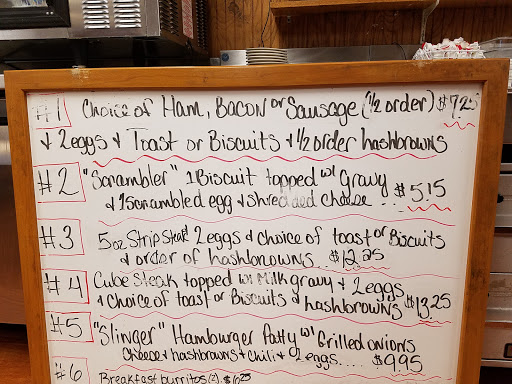 #1 Choice of Ham, Bacon or Sausage (1/2 order) $7.25
+ 2eggs + Toast or Biscuits + 1/2 order hashbrowns
#2 "Scrambler" 1 Biscuit topped w/ Gravy
+ 1 Scrambled egg + shredded cheese... $5.15
#3 5oz Strip Steak 2 eggs + choice of toast or Biscuits
+ order of hashbrowns... $12.25
#4 Cube Steak topped w/ Milk gravy + 2eggs
+ Choice of toast or Biscuits + hashbrowns $13.25
#5 "Slinger" Hamburger Patty w/ Grilled onions
Cheese + hashbrowns + chili + 2 eggs..... $9.95
#6 Breakfast burritos (2). $6.25